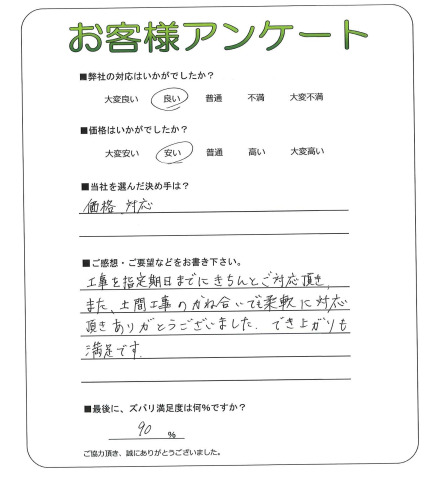 お客様アンケート
■弊社の対応はいかがでしたか？
大変良い 良い 普通 不満 大変不満
■価格はいかがでしたか？
大変安い 安い 普通 高い 大変高い
■当社を選んだ決め手は？
価格、対応
■ご感想・ご要望などをお書き下さい。
工事を指定期日までにきちんとご対応頂き、
また、土間工事のかね合いでも柔軟に対応
頂きありがとうございました. でき上がりも
満足です.
■最後に、ズバリ満足度は何％ですか？
90 %
ご協力頂き、誠にありがとうございました。